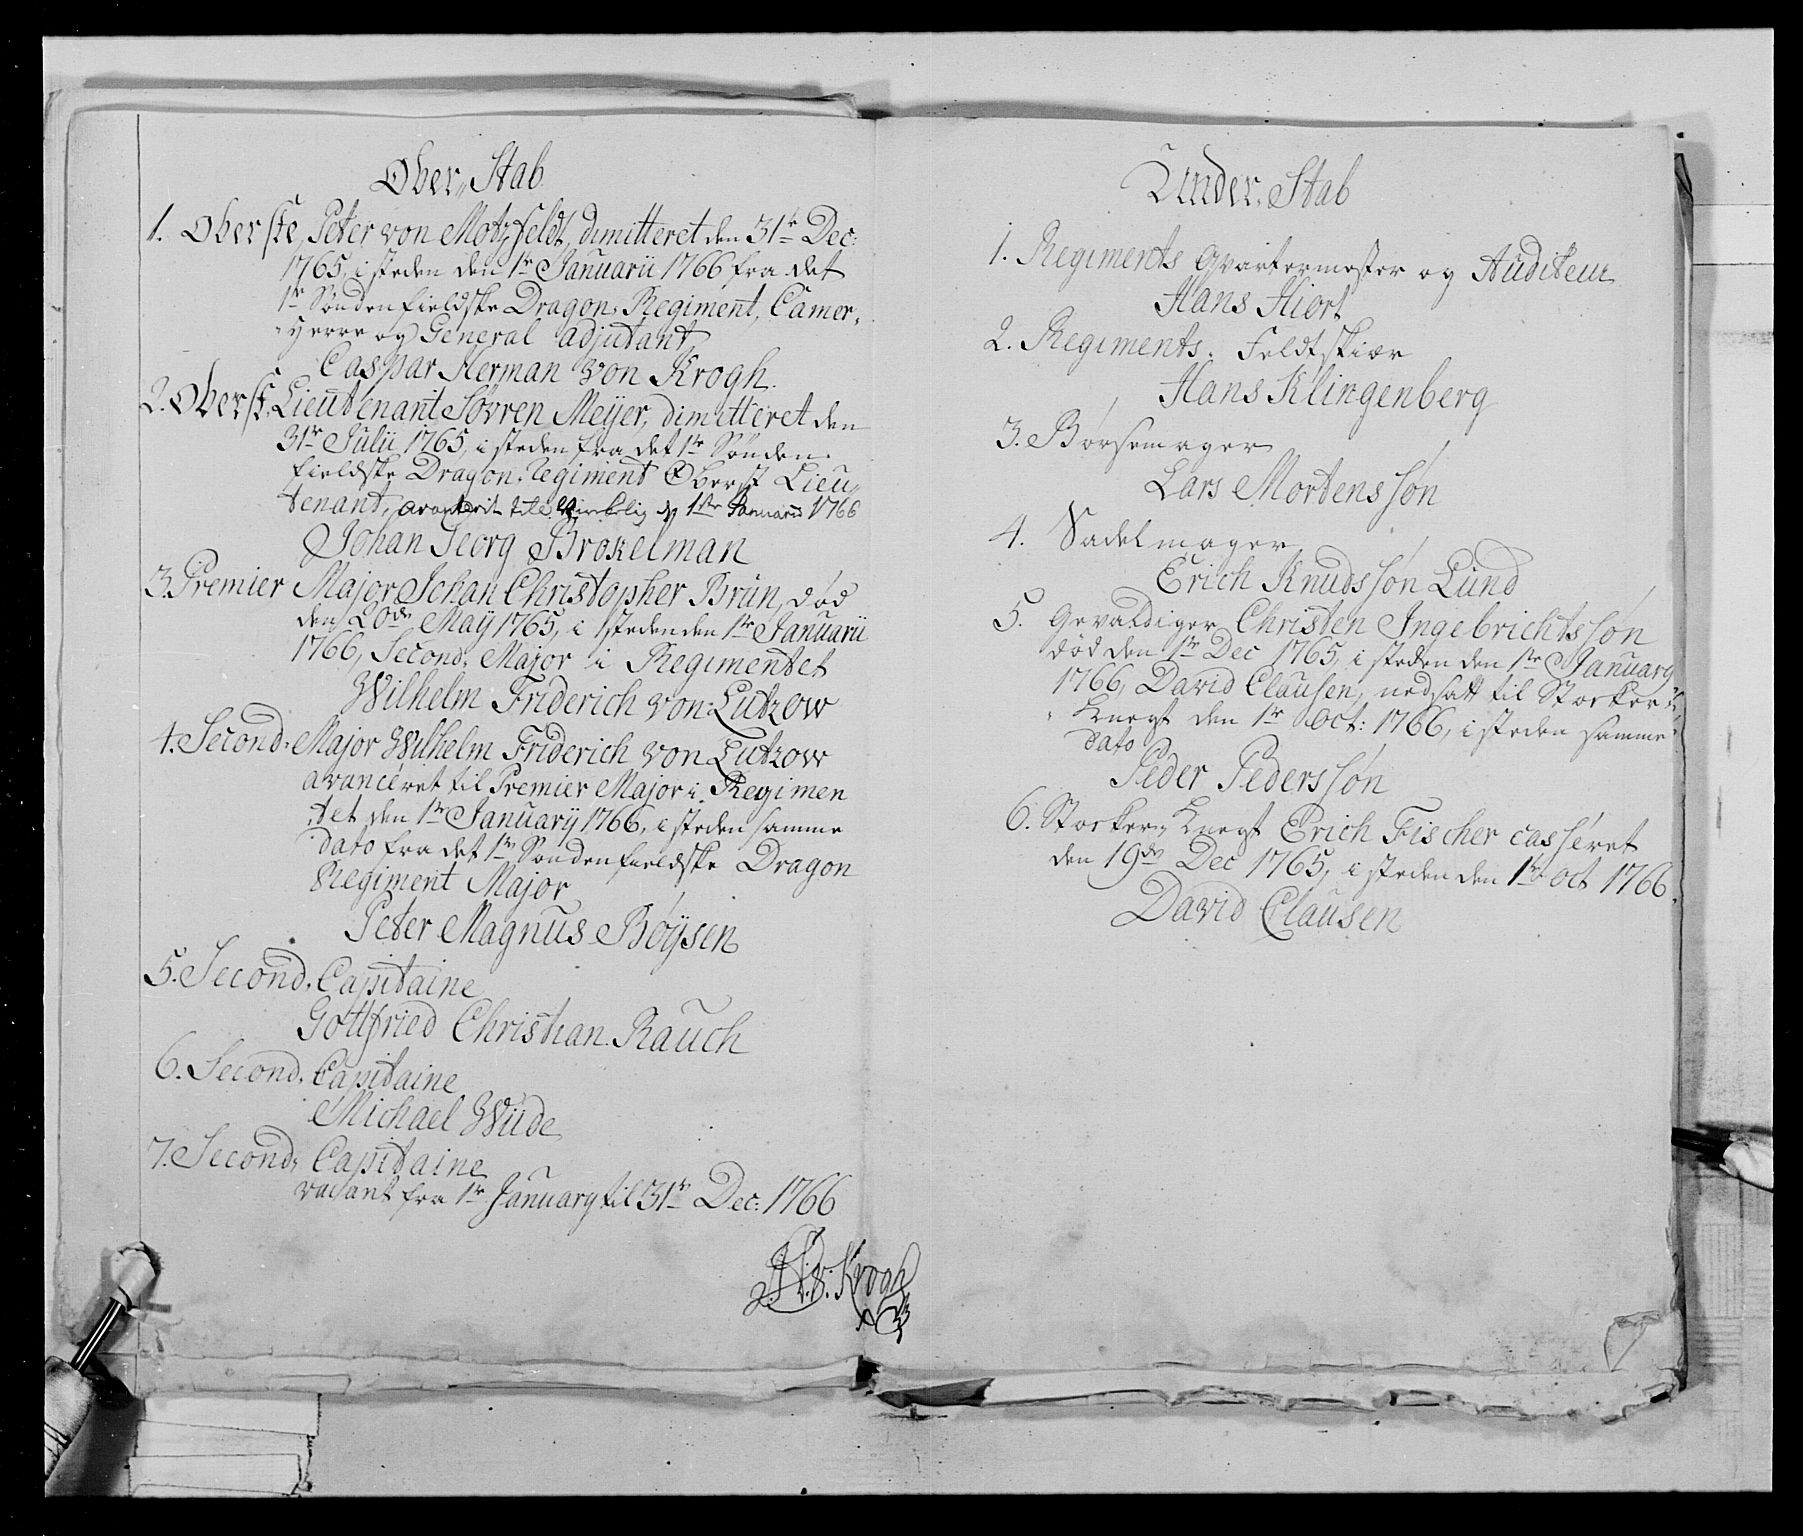 Ober, Stab
1. Oberste, Peter von Motzfeldt, dimitteret den 31te Dec:
1765, i steden den 1te Januarii 1766 fra det
1te Søndenfieldske Dragon, Regiment, Camer,
Herre og General Adjutant
Caspar Herman von Krogh.
2. Oberst, Lieutenant Søvren Meyer, dimitteret den
31te Julii 1765, i steden fra det 1te Sønden,
fieldske Dragon, Regiment Oberst Lieu,
tenant, avancerit til virkelig d 1ste Januarii 1766
Johan Georg Brokelman
3. Premier Major Johan Christopher Brun, død
den 20de May 1765, i steden den 1te Januarii
1766, Second, Major i Regimentet
Wilhelm Friderich von Lutzow
4. Second, Major Wilhelm Friderich von Lutzow
avanceret til Premier Major i Regimen
tet den 1te January 1766, i steden samme
dato fra det 1te Søndenfieldske Dragon
Regiment Major
Peter Magnus Boysen
5. Second, Capitaine
Gottfried Christian Rauch
6. Second, Capitaine
Michael Wude
7. Second, Capitaine
vacant fra 1te January til 31te Dec: 1766
v: Krogh
Under, Stab
1. Regiments Qvartermester og Auditeur
Hans Hiort
2. Regiments, Feldtskiær
Hans Klingenberg
3. Børsemager
Lars Mortenssøn
4. Sadelmager
Erich Knudssøn Lund
5. Gevaldiger Christen Ingebrichtssøn
død den 1te Dec 1765, i steden den 1te January
1766, David Clausen, nedsatt til Stocker,
Knegt den 1te Oct: 1766, i steden samme
dato
Peder Pederssøn
6. Stocker, Knegt Erich Fischer casseret
den 19de Dec 1765, i steden den 1te Oct 1766
David Clausen